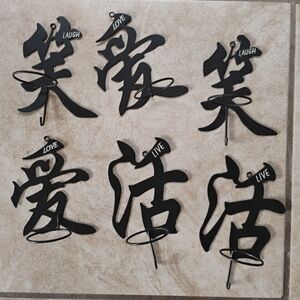 笑 LAUGH
愛 LOVE
笑 LAUGH
愛 LOVE
活 LIVE
活 LIVE